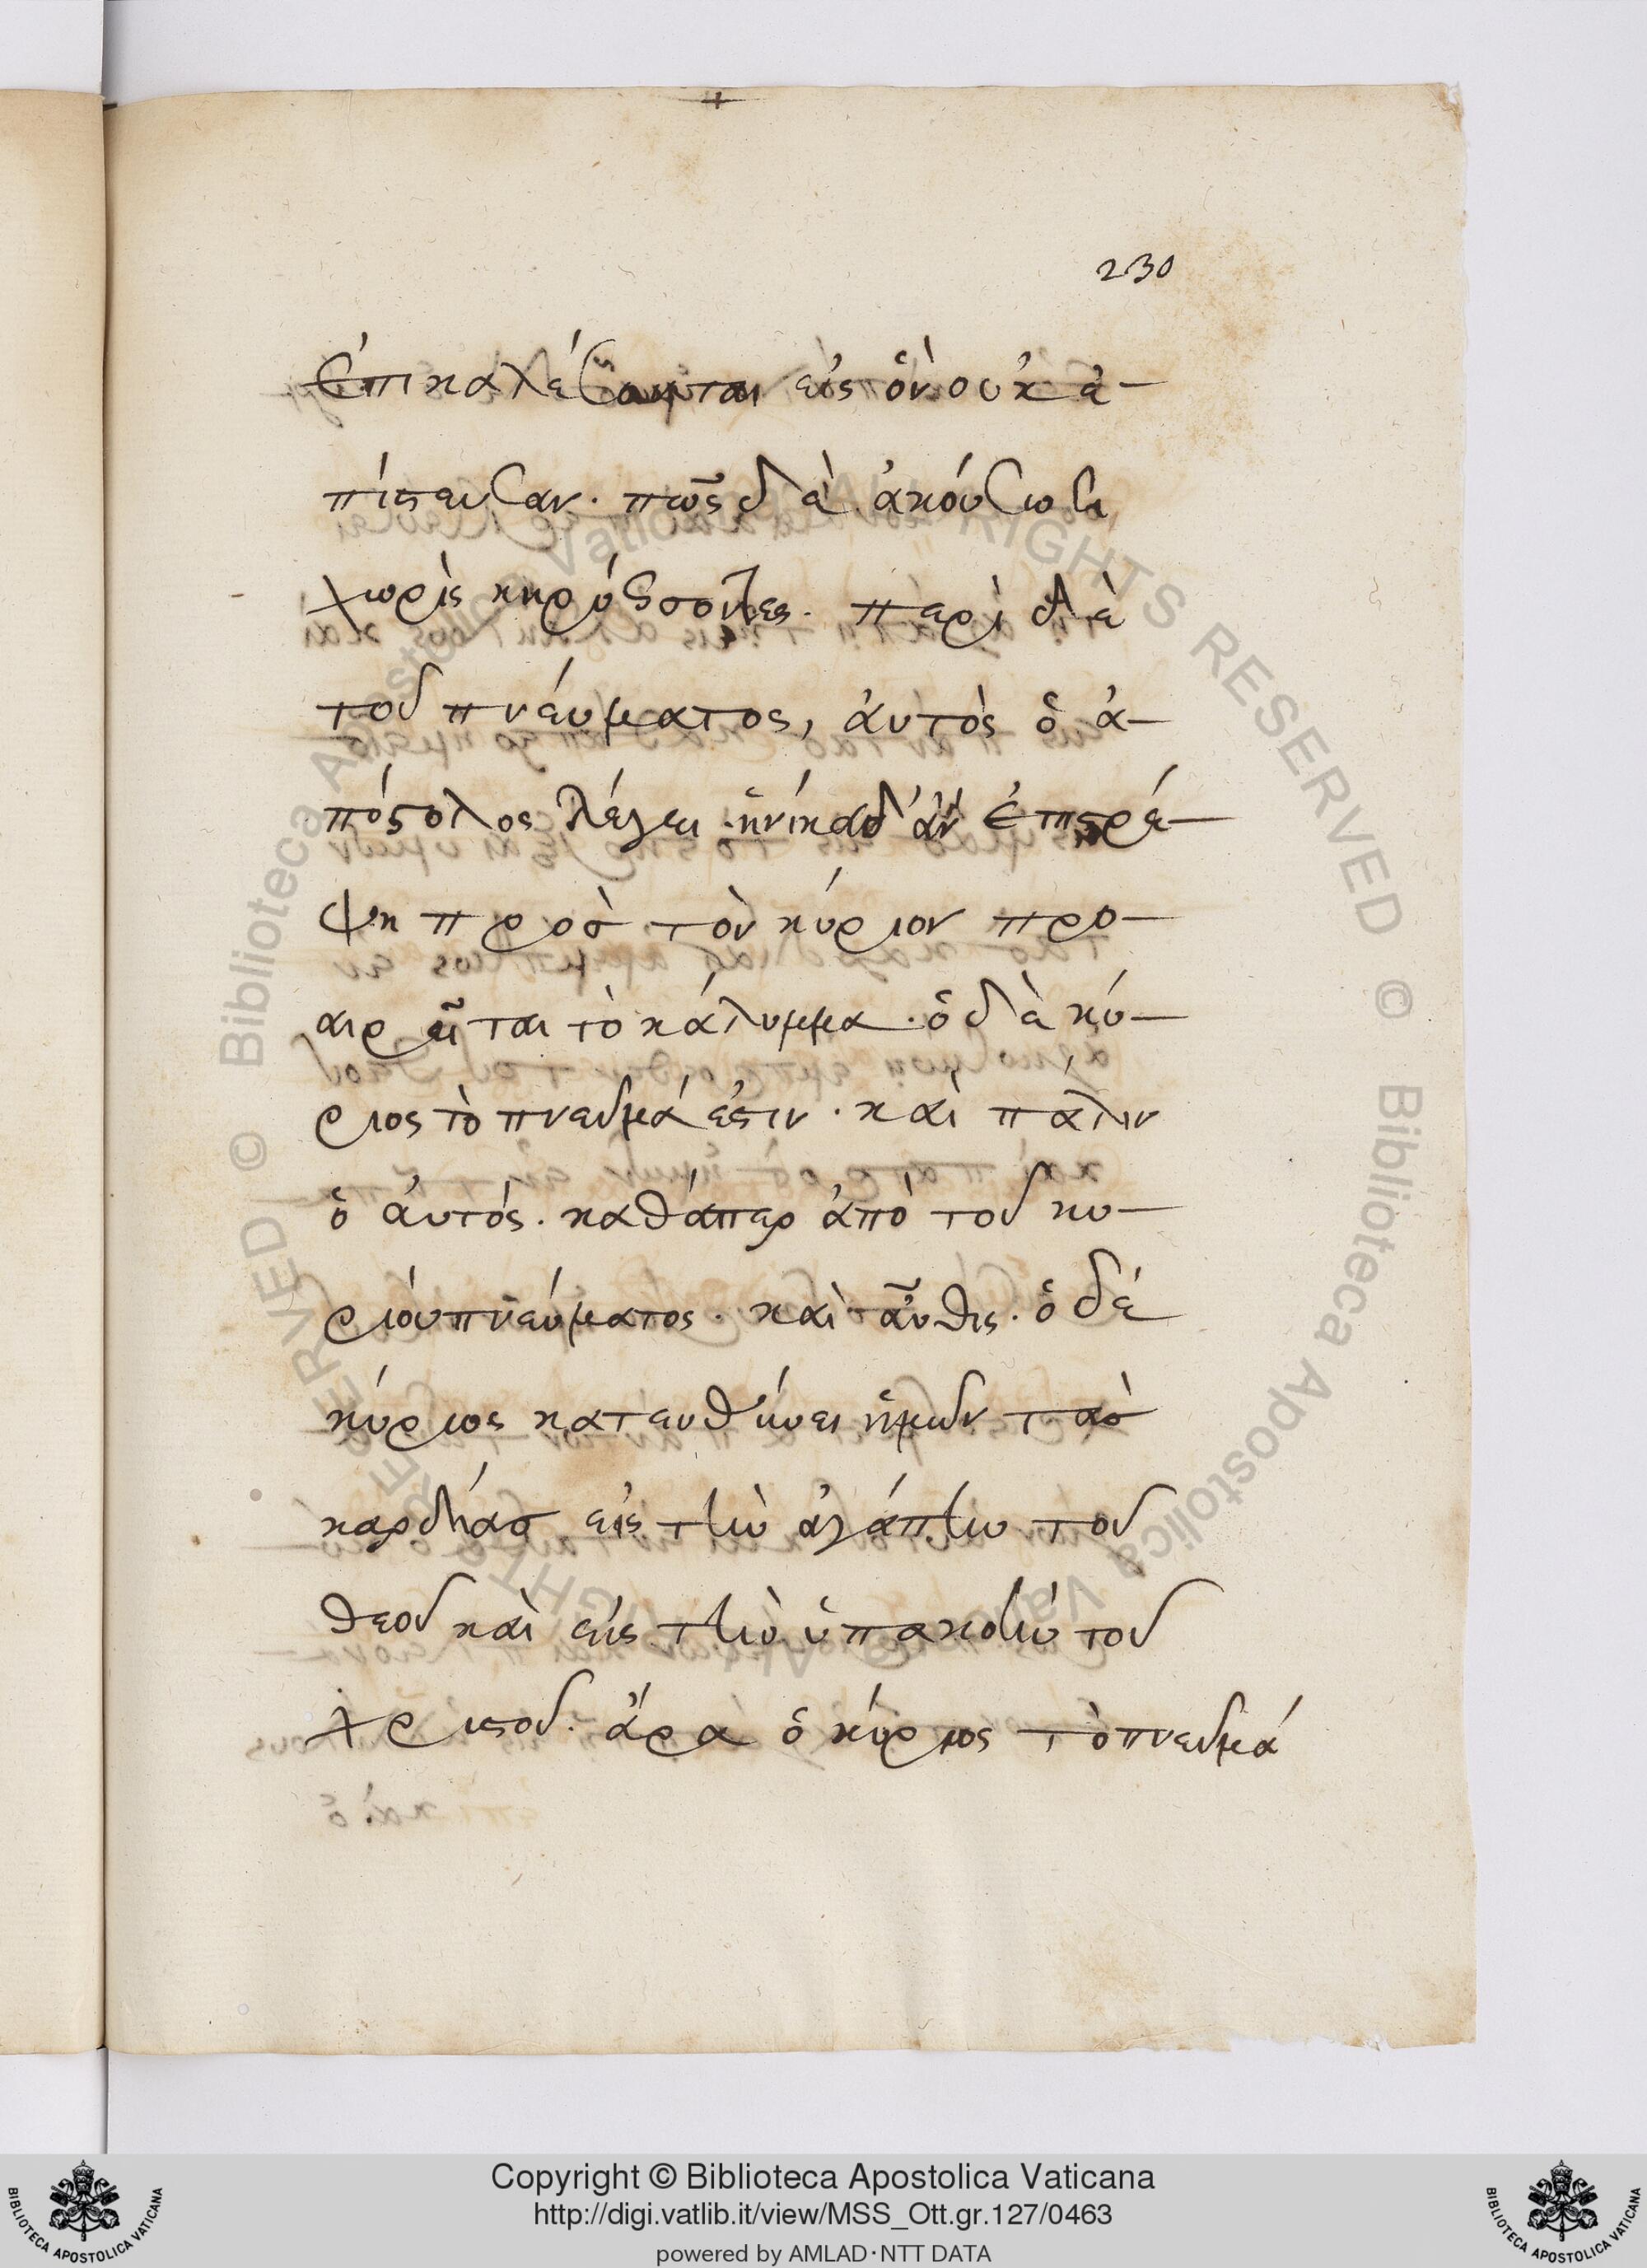 230
ἐπικαλέσωνται εἰς ὃν οὐκ ἐ-
πίστευσαν. πῶς δὲ ἀκούσωσι
χωρὶς κηρύσσοντες. περὶ δὲ
τοῦ πνεύματος, ἀυτὸς ὁ ἀ-
πόστολος λέγει. ἡνίκα δ' ἂν ἐπιστρέ-
ψη πρὸσ τὸν κύριον προ-
αιρεῖται τὸ κάλυμμα. ὁ δὲ κύ-
ριος τὸ πνεῦμά ἐστιν. καὶ πάλιν
ὁ ἀυτός. καθάπερ ἀπὸ τοῦ κυ-
ρίου πνεύματος. καὶ αὖθις. ὁ δέ
κύριος κατευθύνει ἡμῶν τὰσ
καρδίασ εἰς τὴν ἀγάπην τοῦ
θεοῦ καὶ εἰς τὴν ὑπακοὴν τοῦ
χριστοῦ. ἄρα ὁ κύριος τὸ πνεῦμά
Copyright © Biblioteca Apostolica Vaticana
http://digi.vatlib.it/view/MSS_Ott.gr.127/0463
powered by AMLAD·NTT DATA
BIBLIOTECA APOSTOLICA VATICANA
BIBLIOTECA APOSTOLICA VATICANA